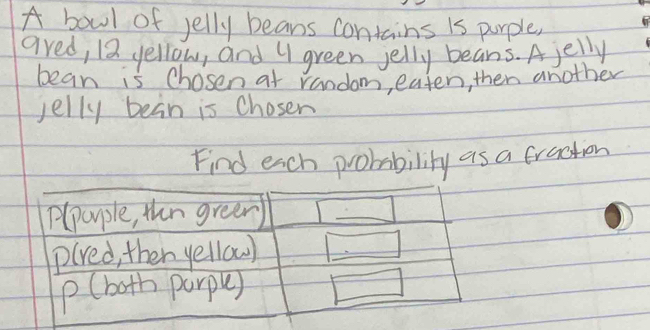 A bowl of jelly beans contains 15 purple,
9 red, 12 yellow, and 4 green jelly beans. A jelly
bean is chosen at random, eaten, then another
jelly bean is chosen
Find each probability as a fraction
P(purple, then green)
p(red, then yellow)
p (both purple)